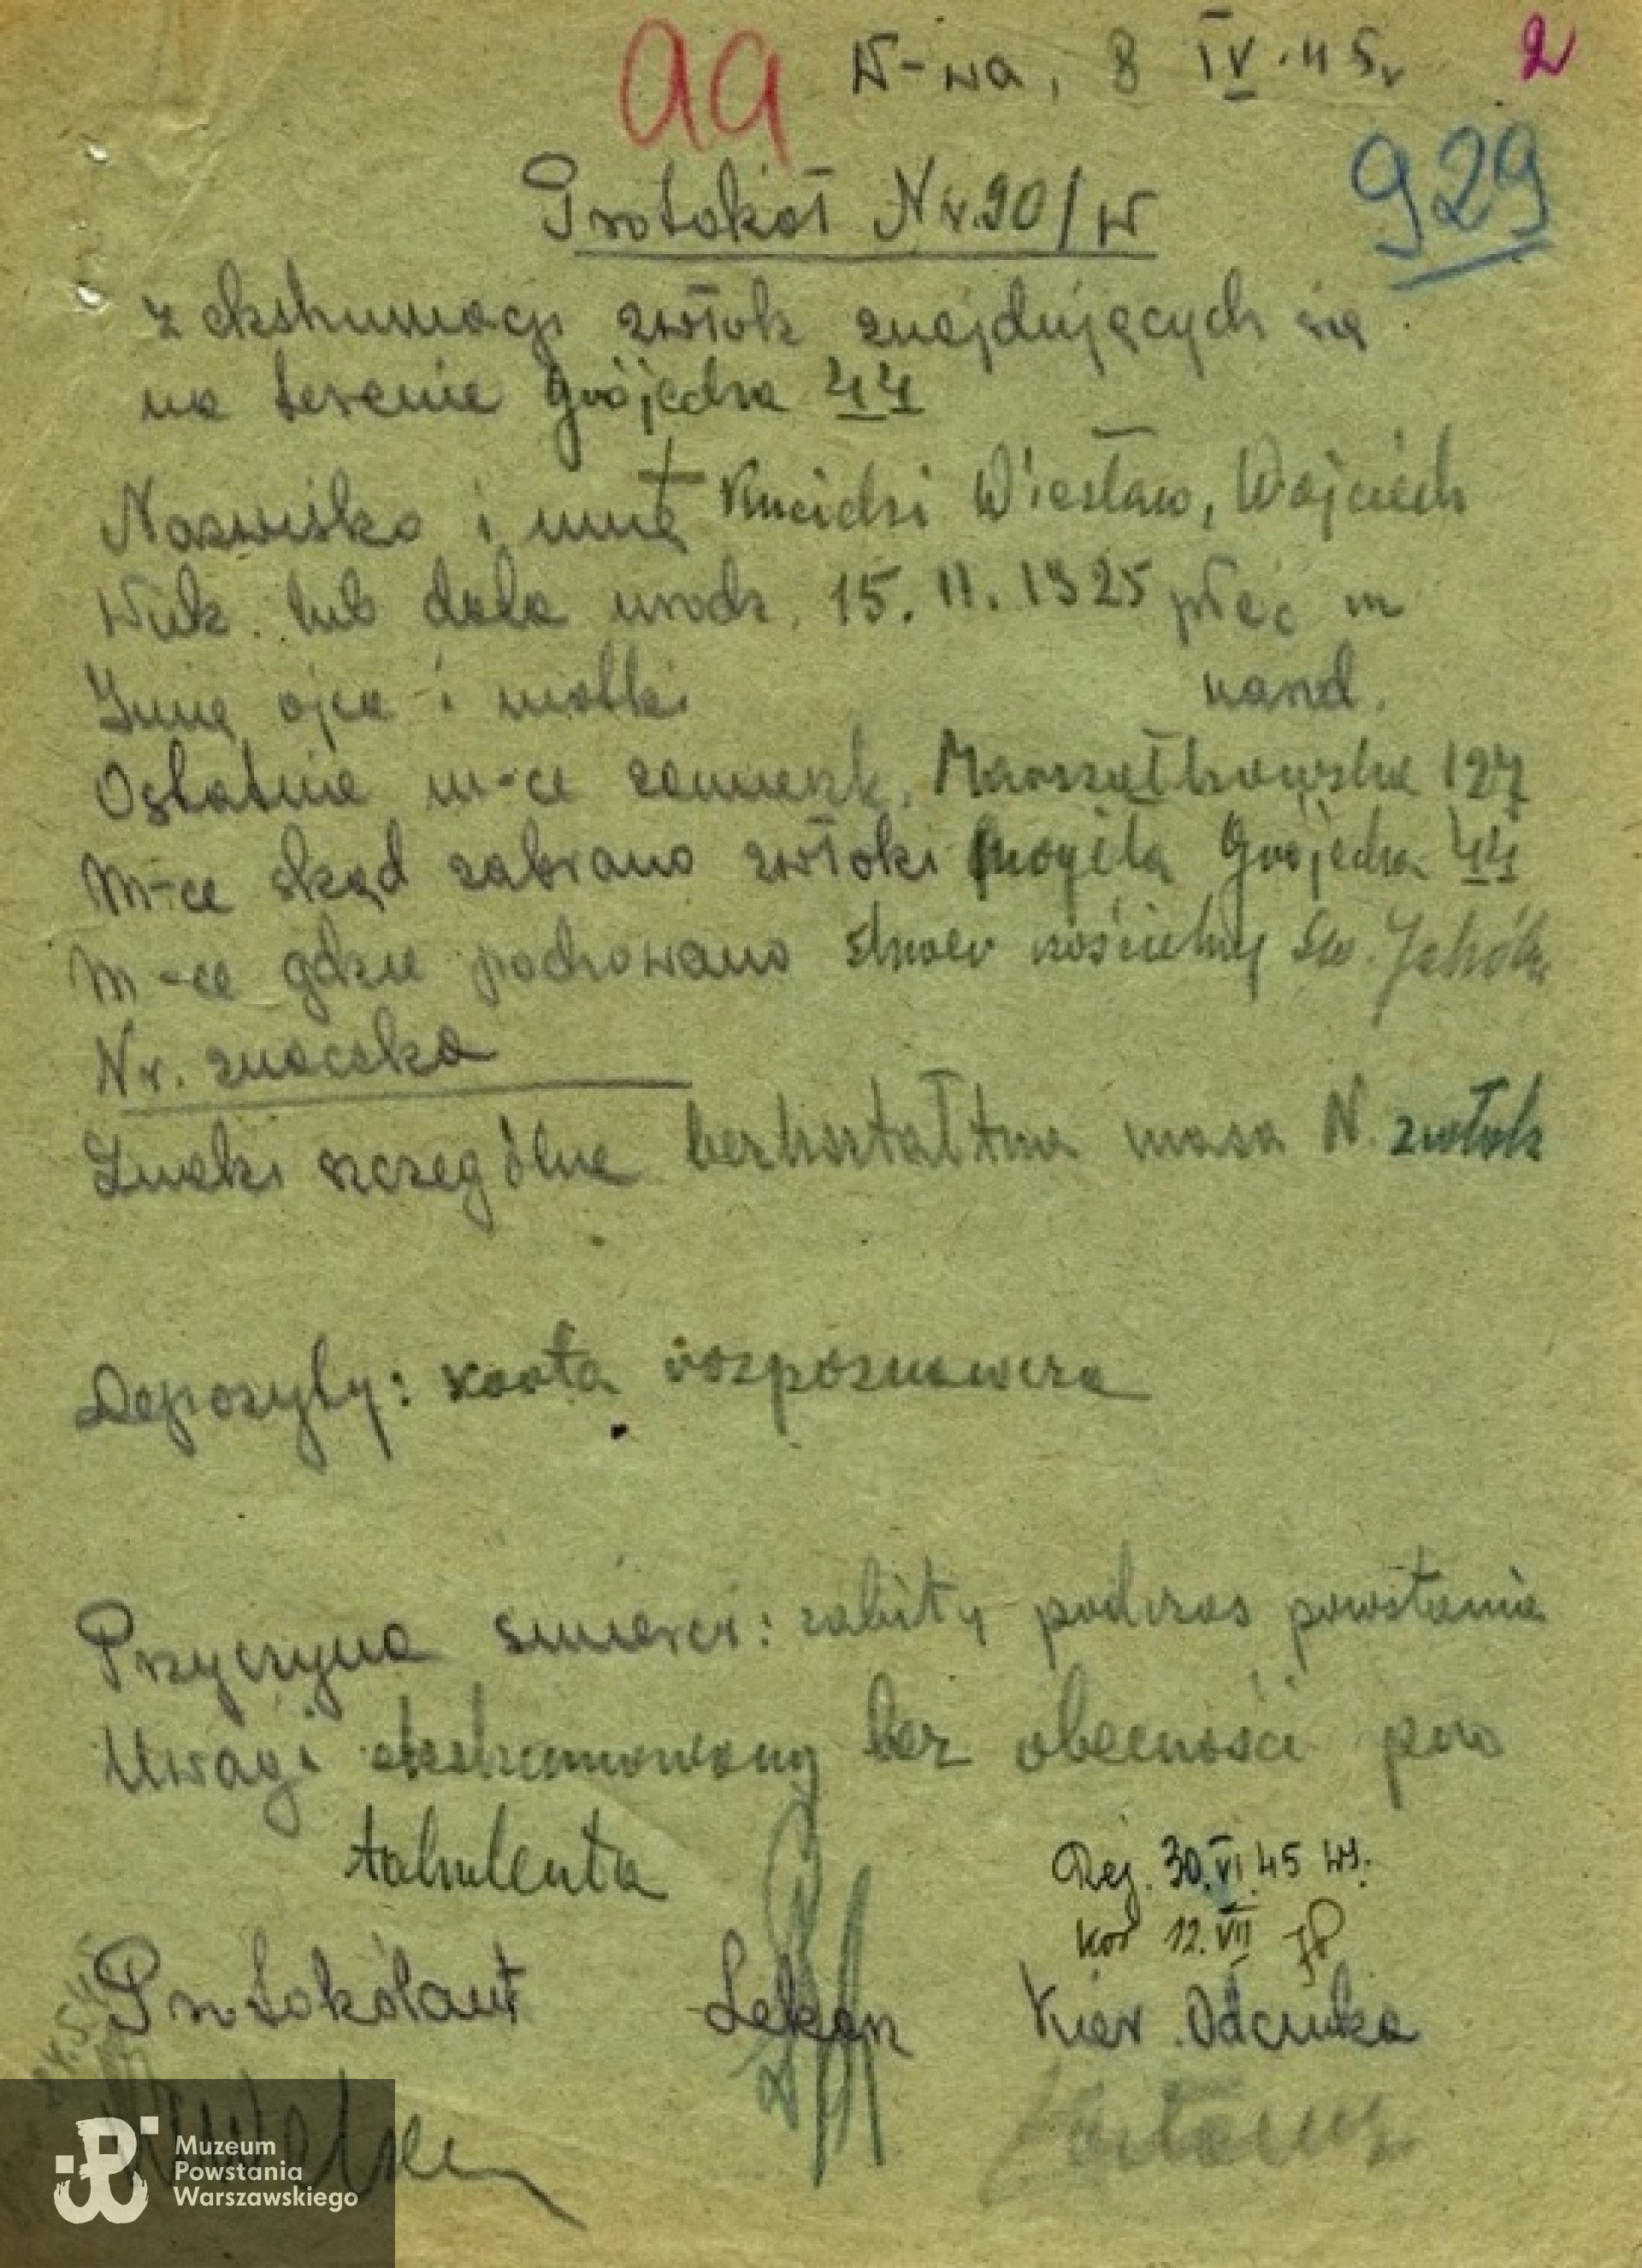 aa W-wa, 8 IV.45r 2
929
Protokół Nr.90/W
z ekshumacji zwłok znajdujących się
na terenie Grójecka 44
Nazwisko i imię + Kucicki Wiesław, Wojciech
Wiek lub data urodz. 15.II.1925 płeć m
Imię ojca i matki narod.
Ostatnie m-ce zamieszk. Marszałkowska 127
M-ce skąd zabrano zwłoki mogiła Grójecka 44
M-ce gdzie pochowano skwer kościelny Św. Jakóba
Nr. znaczka
Znaki szczególne bezkształtna masa N. zwłok
Depozyty: karta rozpoznawcza
Przyczyna śmierci: zabity podczas powstania
Uwagi ekshumowany bez obecności pro
tokulenta
Rej. 30.VI.45 WJ.
Kor 12.VII
Protokólant Lekarz Kier. Odcinka
Muzeum
Powstania
Warszawskiego